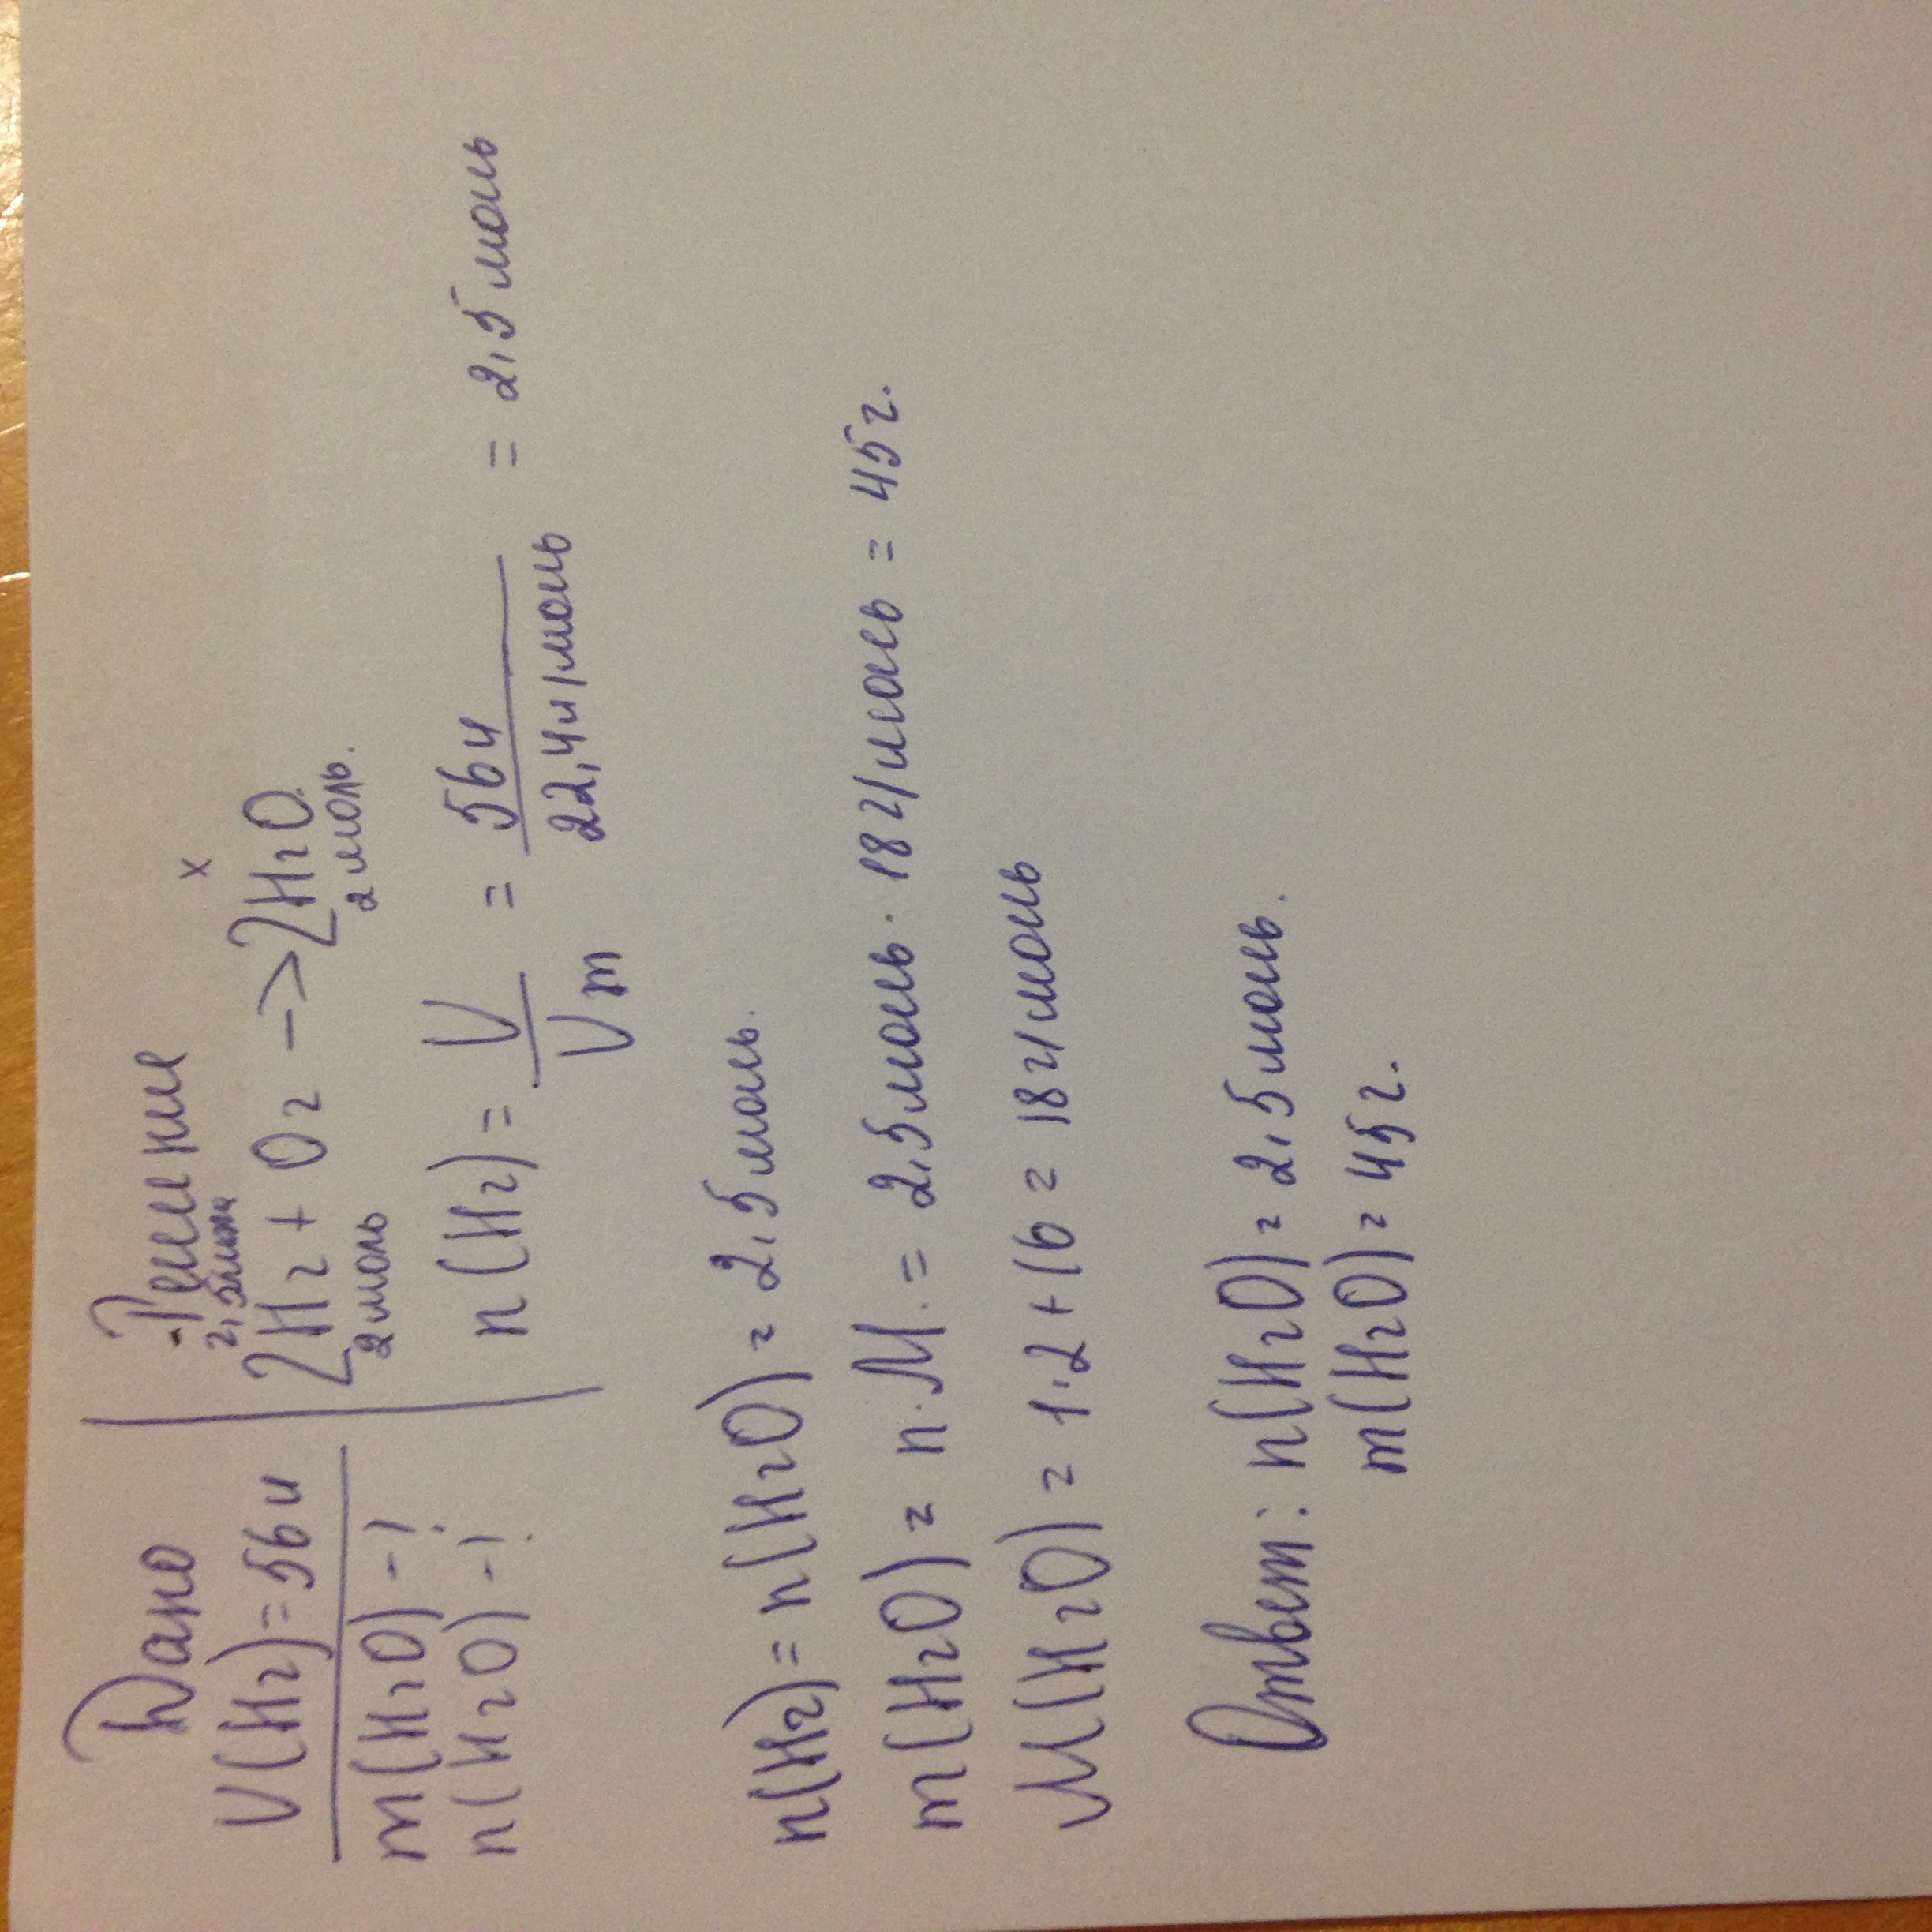 Дано
V(H₂)=56л
m(H₂O)-?
n(H₂O)-?
Решение
2,5моль x
2H₂+O₂→2H₂O
2моль 2моль.
n(H₂)=V/Vm=56л/22,4л/моль=2,5моль
n(H₂)=n(H₂O)=2,5моль.
m(H₂O)=n·M.=2,5моль·18г/моль=45г.
M(H₂O)=1·2+16=18г/моль
Ответ: n(H₂O)=2,5моль.
m(H₂O)=45г.